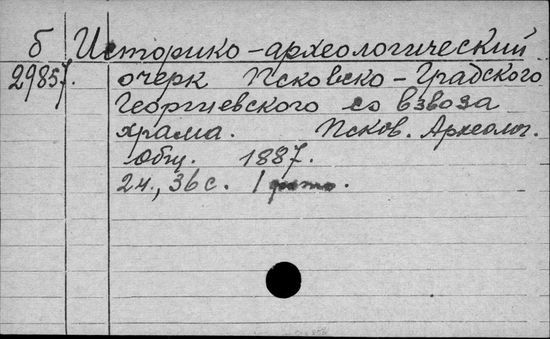 б Историко-археологический
29857. очерк Псковско-Градского
Георгиевского со взвоза
храма. Псков. Археолог.
общ. 1887.
2н., 36 с. 1 фото.